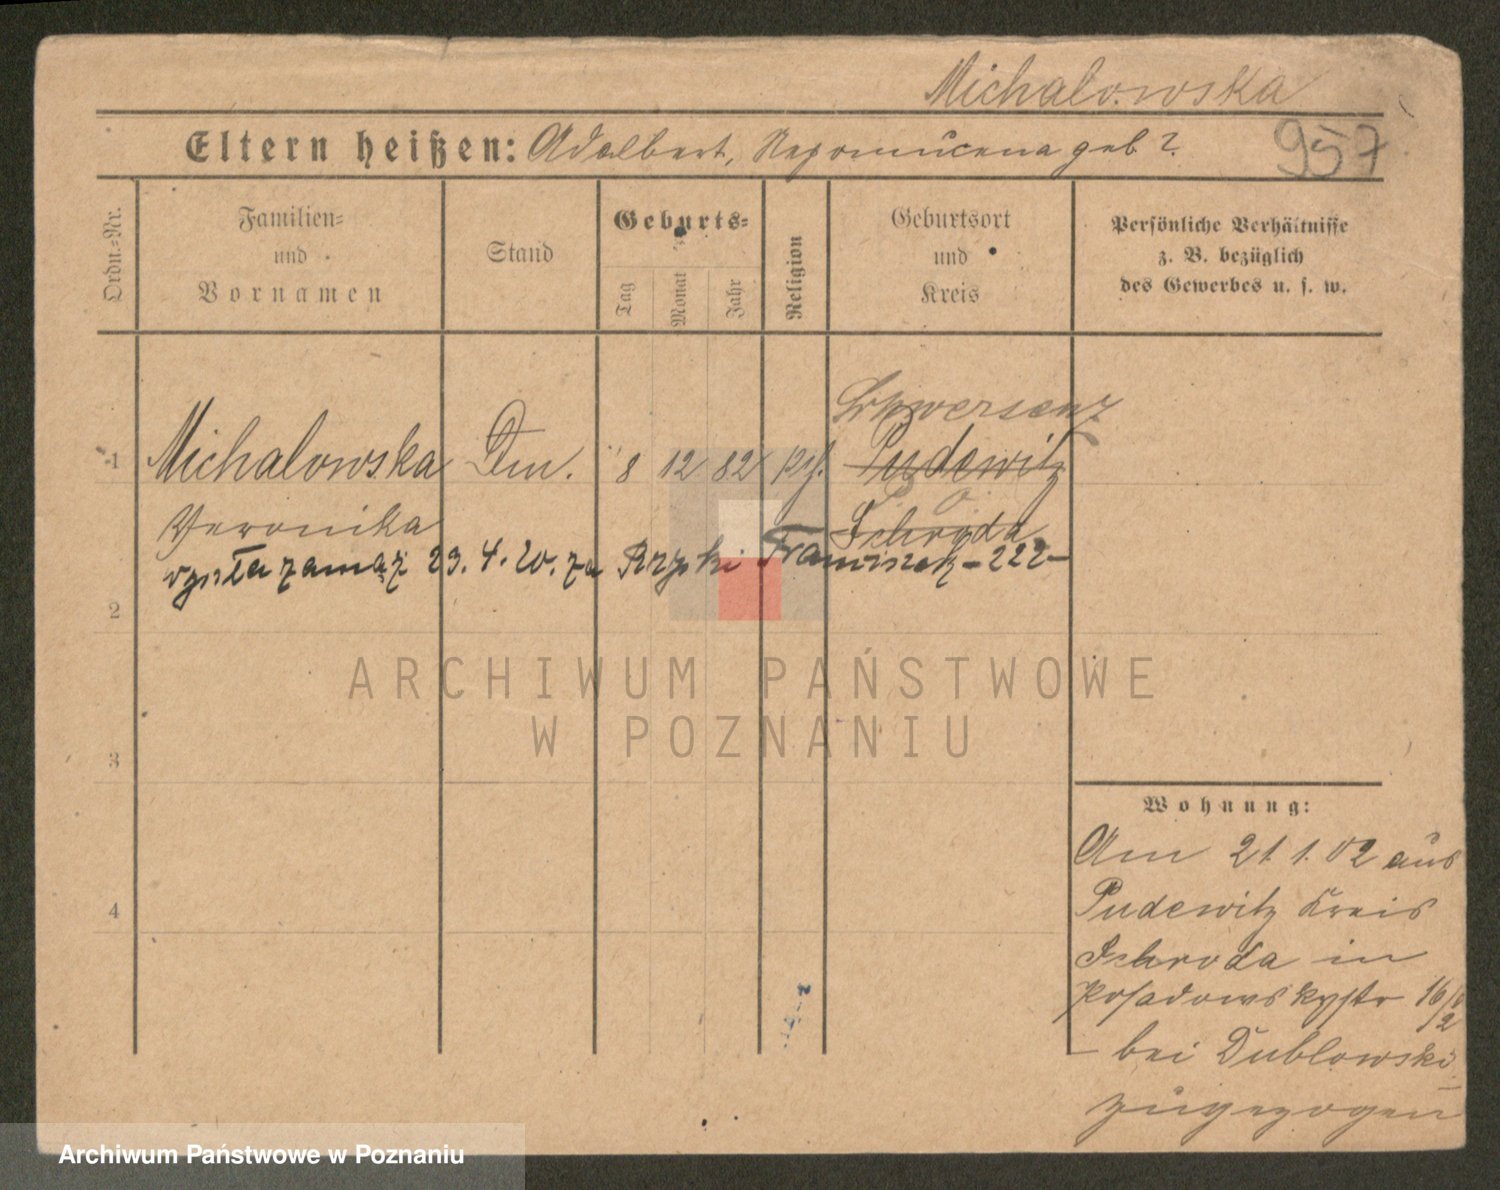 Michalowska
Eltern heißen: Adalbert, Nepomucena geb ?.
957
Ordn.=Nr.
Familien=
und
Vornamen
Stand
Geburts=
Tag
Monat
Jahr
Religion
Geburtsort
und
Kreis
Persönliche Verhältnisse
z. B. bezüglich
des Gewerbes u. s. w.
Schwersenz
1 Michalowska Dm. 8 12 82 Pudewitz
Veronika Schroda
zamąż 23. 4. 20. za Franciszek - 222 -
2
3
4
Wohnung:
Am 21. 1. 02 aus
Pudewitz Kreis
Schroda in
Posadowskystr 16/
2
- bei Dublowski
zugezogen
ARCHIWUM PAŃSTWOWE
W POZNANIU
Archiwum Państwowe w Poznaniu